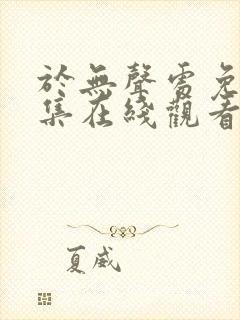 於無聲處免
集在綫觀看
夏威